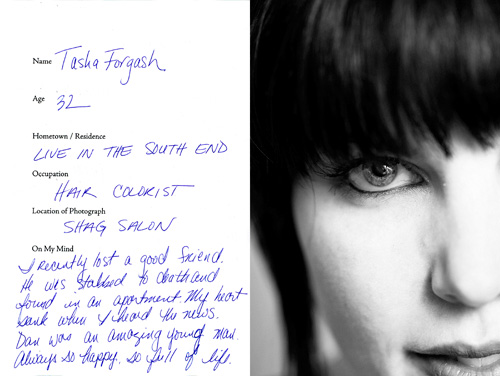 Name Tasha Forgash
Age 32
Hometown / Residence
LIVE IN THE SOUTH END
Occupation
HAIR COLORIST
Location of Photograph
SHAG SALON
On My Mind
I recently lost a good friend.
He was stabbed to death and
found in an apartment. My heart
sank when I heard the news.
Dan was an amazing young man.
Always so happy. so full of life.